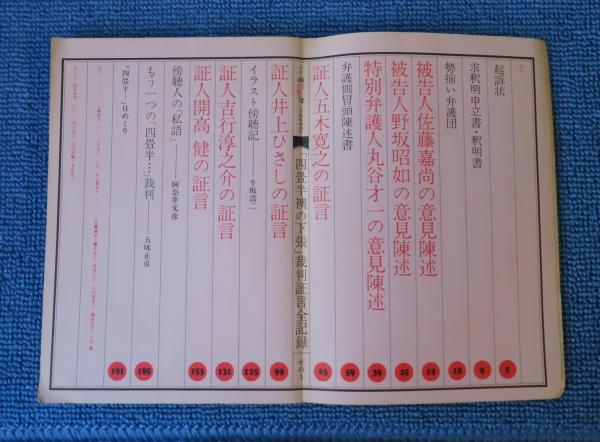 起訴状
5
求釈明申立書・釈明書
9
勢揃い弁護団
18
被告人佐藤嘉尚の意見陳述
19
被告人野坂昭如の意見陳述
25
特別弁護人丸谷才一の意見陳述
39
弁護側冒頭陳述書
59
証人五木寛之の証言
63
「四畳半襖の下張」裁判証言全記録
その1
証人井上ひさしの証言
99
イラスト傍聴記
牛坂浩二
125
証人吉行淳之介の証言
131
証人開高 健の証言
153
傍聴人の「私語」
阿奈井文彦
もう一つの「四畳半…」裁判
五味正彦
185
「四畳半…」日めくり
191